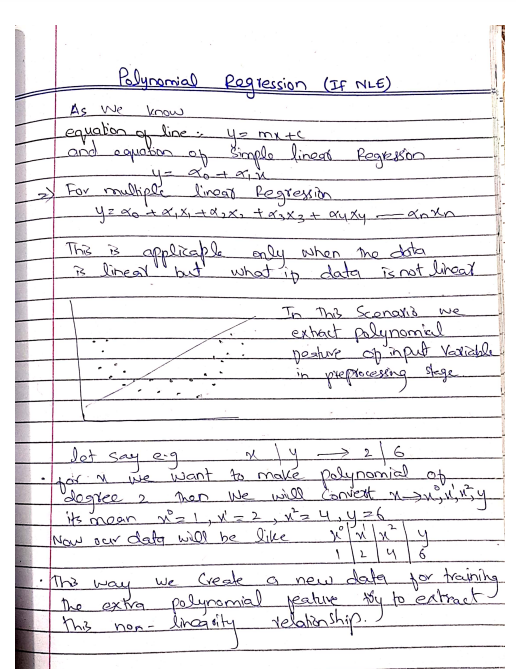 Polynomial Regression (If NLE)
As we know
equation of line :- y = mx + c
and equation of Simple linear Regression
y = α₀ + α₁x
=> For multiple linear Regression
y = α₀ + α₁x₁ + α₂x₂ + α₃x₃ + α₄x₄ — αₙxₙ
This is applicable only when the data
is linear but what if data is not linear
In This Scenario we
extract polynomial
feature of input variable
in preprocessing stage
let say e.g x | y → 2 | 6
• for x we want to make polynomial of
degree 2 then we will convert x→x⁰, x¹, x², y
its mean x⁰ = 1, x¹ = 2, x² = 4, y = 6
Now our data will be like x⁰ | x¹ | x² | y
1 | 2 | 4 | 6
• This way we Create a new data for training
the extra polynomial feature try to extract
this non-linearity relationship.